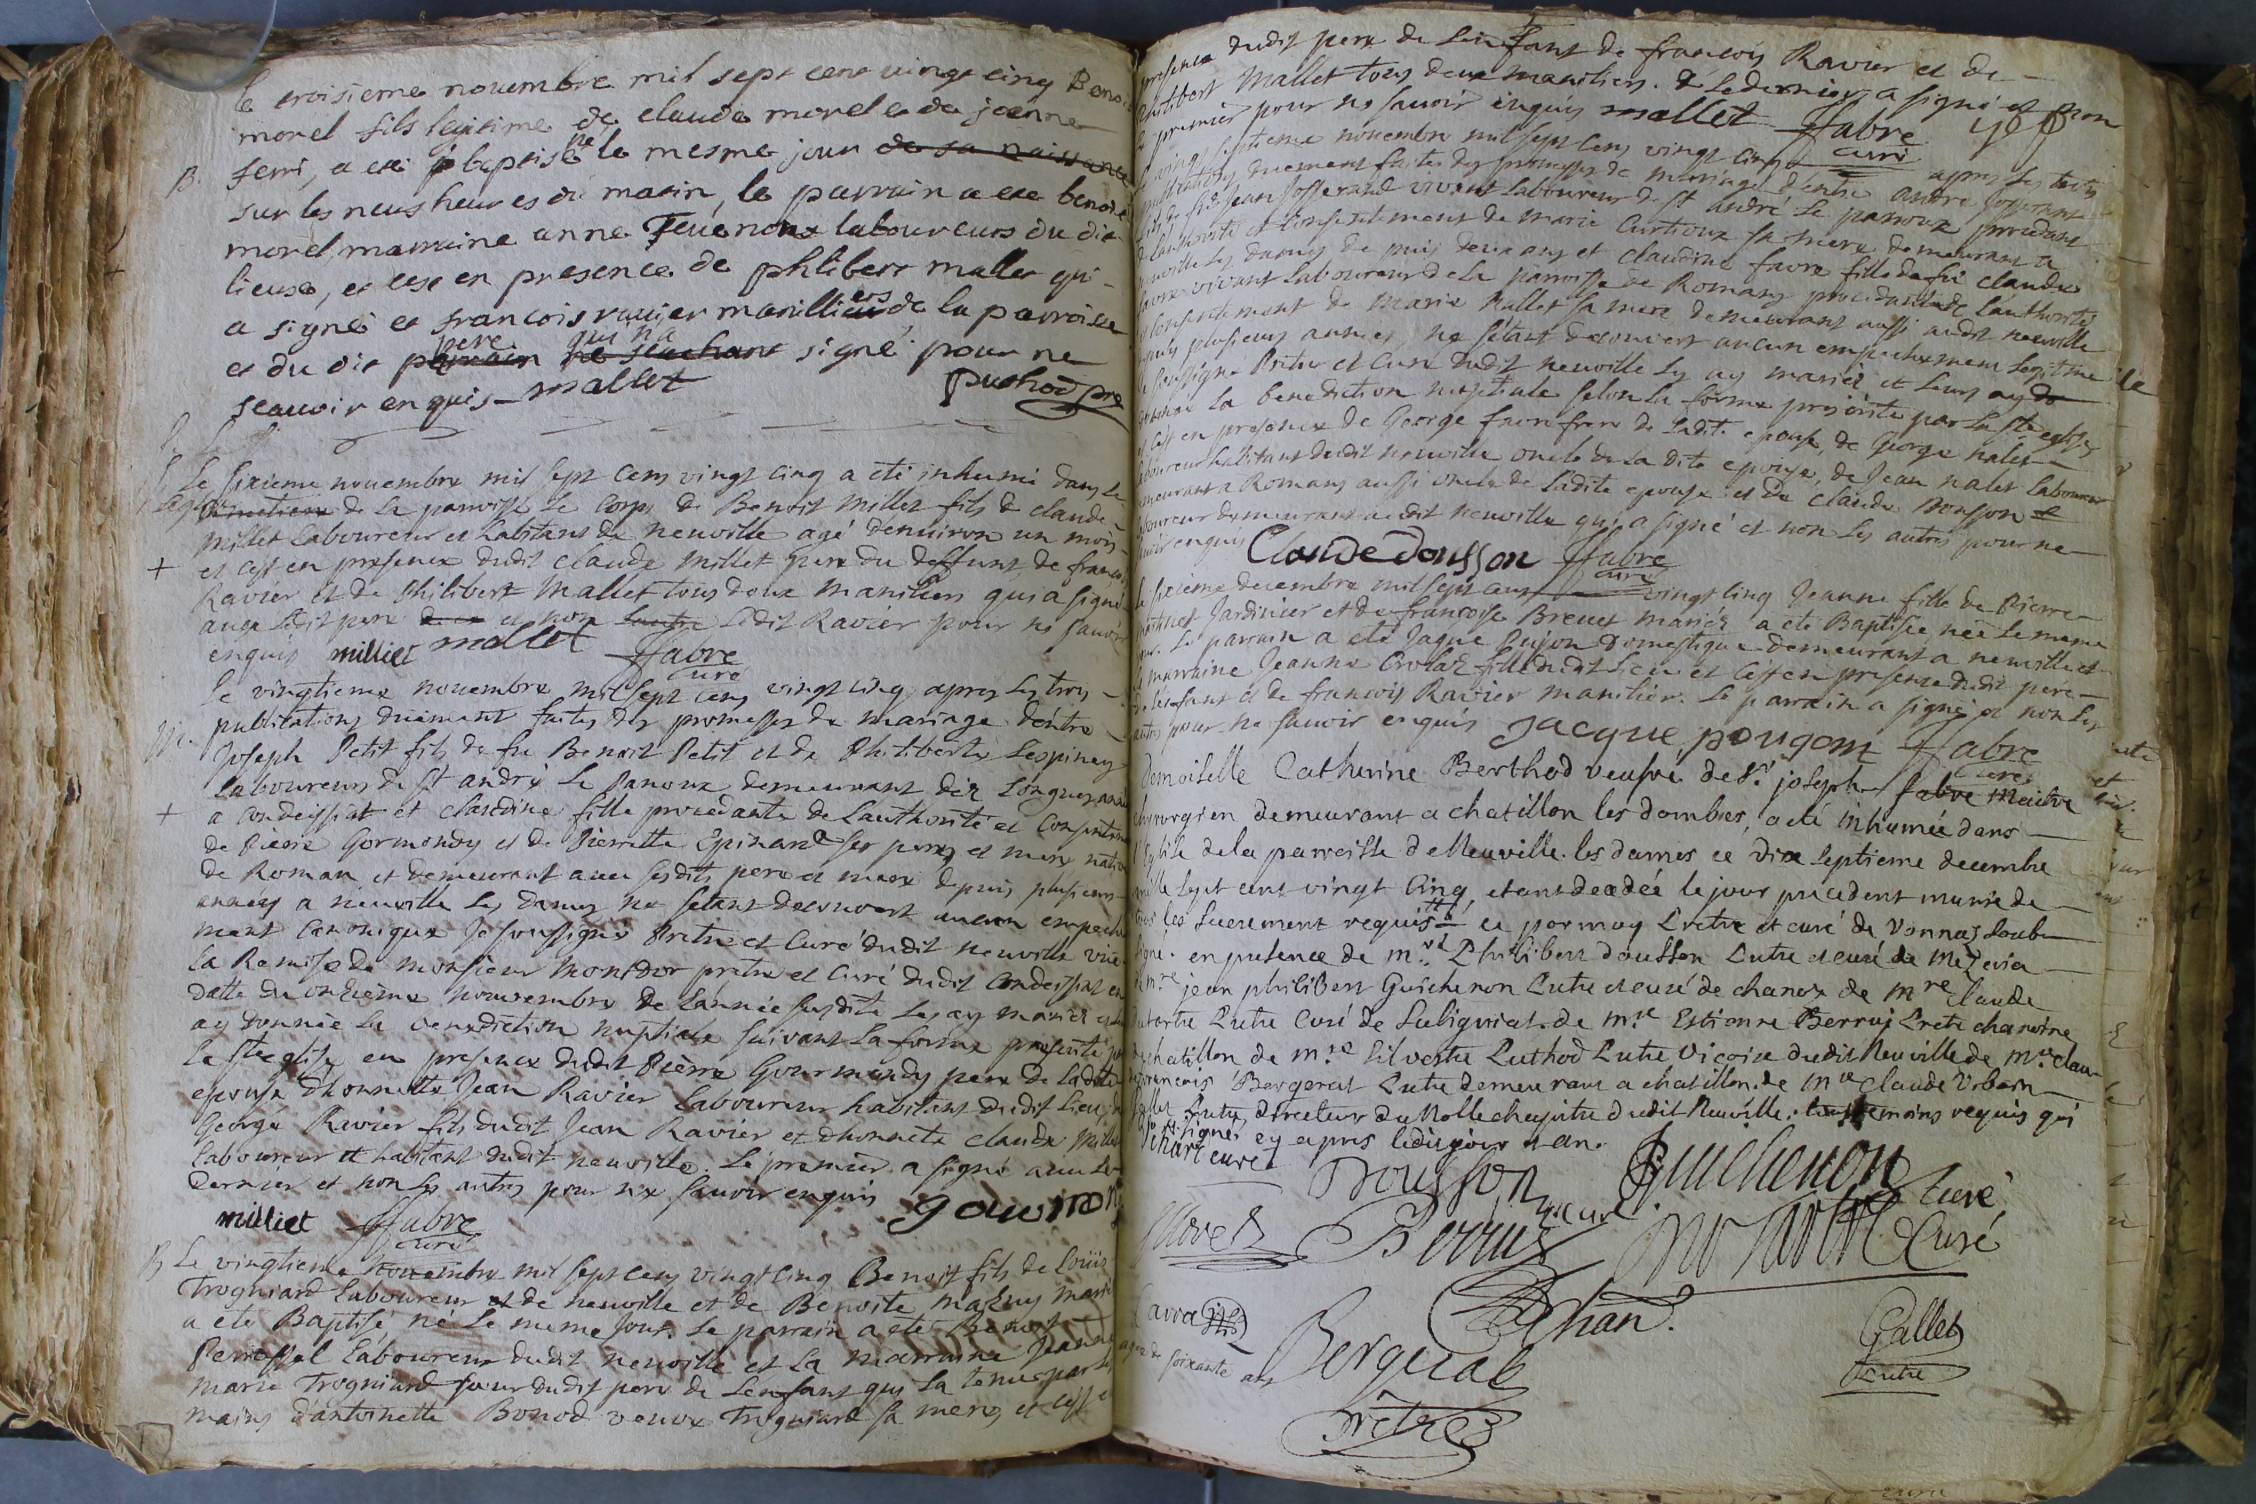 le troisieme novembre mil sept cent vingt cinq Benoi
morel fils legitime de claude morel e de jeanne
ferri, a ete baptisé ne le mesme jour de sa naissance
B.
sur les neufs heures du matin, le parrain a ete benoit
morel, marraine anne Teuenons laboureurs du dit
lieuse, et cest en presence de philibert mallet qui
a signé et francois rauier marilliers de la parroisse
et du dit parrain pere ne scachant qui na signé pour ne
scauoir enquis mallet puthod pre
Le sixieme novembre mil sept cens vingt cinq a eté inhumé dans le
cimetiere de la parroisse le corps de Benoit Millet fils de claude
Millet laboureur et habitant de neuville agé denuiron un mois
+
et c'est en presence dudit claude Millet pere du deffunt, de francois
Ravier et de Philibert Mallet tous deux Mariliers qui a signé
auec ledit pere et non ledit Ravier pour ne sauoir
enquis milliet mallet ffabre
curé
Le vingtieme novembre mil sept cens vingt cinq apres les trois
M.
publications duement faites des promesses de mariage d'entre
Joseph Petit fils de fu Benoit Petit et de Philiberte Lespinay
laboureurs de St andré le panoux demeurant
+
a condeissiat et claudine fille procedante de Lauthorité et Consentement
de Pierre Gormondy et de Pierrette Epinard ses pere et mere natifs
de Roman et demeurant auec sesdits pere et mere depuis plusieurs
années a neuville les dames ne setant decouvert aucun empeche
ment Canonique Je soussigné Pretre et Curé dudit neuville vue
la Remise de monsieur montdor pretre et curé dudit Condeissiat en
datte du onzieme nouvembre de lannée susdite les ay mariés et leur
ay donnée la benediction nuptiale suivant la forme prescrite par
la Ste eglise en presence dudit Pierre Gourmondy pere de ladite
epouse d'honnette Jean Ravier laboureur habitant dudit lieu, de
George Ravier fils dudit Jean Ravier et d'honnete claude Millet
laboureur et habitant dudit neuville. Le premier a signé auec le
dernier et non les autres pour ne sauoir enquis
milliet ffabre gourmon
curé
B
Le vingtieme novembre mil sept cens vingt cinq Benoit fils de Loüis
Trogniard laboureur de neuville et de Benoite Mazuy mariés
a eté Baptisé né le meme jour. Le parrain a eté Benoit
Perrossel laboureur dudit neuville et la marraine Jeanne
Marie Trogniard soeur dudit pere de l'enfant qui la tenue par les
mains d'antoinette Bonod veuve Trogniard sa mere, et c'est en
presence dudit pere de l'enfant de françois Ravier et de
Philibert Mallet tous deux Mariliers. & le dernier a signé et non
le premier pour ne sauoir enquis mallet ffabre
curé
Le vingt septieme novembre mil sept cens vingt cinq apres les trois
publications duement faites des promesses de mariage d'entre andre Josserand
fils de fu Jean Josserand vivant laboureur de St andré le panoux procedant
de lauthorité et consentement de Marie Curtioux sa mere demeurant a
neuville les dames de puis deux ans et claudine favre fille de fu claude
favre vivant laboureur de la parroisse de Romans procedante de lauthorité
et consentement de Marie Nallet sa mere demeurant aussi audit neuville
depuis plusieurs années, ne s'étant decouvert aucun empechement legitime
je soussigné Pretre et curé dudit neuville les ay mariés et leurs ay
donné la benediction nuptiale selon la forme prescrite par la Ste eglise,
et c'est en presence de George favre frere de ladite epouse, de George nalet
laboureur habitant dudit neuville oncle de la dite epouse, de Jean nalet laboureur
demeurant a Romans aussi oncle de ladite epouse et de claude Donsson
laboureur demeurant audit neuville qui a signé et non les autres pour ne
sauoir enquis Claude donsson ffabre
curé
Le sixieme decembre mil sept cens vingt cinq Jeanne fille de Pierre
Jardinier et de francoise Brevet mariés a eté Baptisée née le meme
jour. Le parrain a eté Jaque Pujon Domestique demeurant a neuville et
la marraine Jeanne Crolaz fille dudit lieu et c'est en presence dudit pere
de l'enfant et de francois Ravier marilier. Le parrain a signé et non les
autres pour ne sauoir enquis Jacque pougom ffabre
curé
Demoiselle Catherine Berthod veufve de Sr. joseph fabre Maitre
chyrurgien demeurant a chatillon les dombes, a eté inhumée dans
l'eglise de la parroisse de Neuville les dames ce dix septieme decembre
mille sept cent vingt cinq, etant decedée le jour precedent munie de
tous les sacrement requis ce par moy Pretre et curé de Vonnas soub
signé. en presence de mre. Philibert dousson Pretre et curé de Mezeria
de mre jean philibert Guichenon Pretre et curé de chanox de mre Claude
dutartre Pretre Curé de Suligniat. de mre Estienne Berruj Prete chanoine
de chatillon de mre Silvestre Puthod Pretre vicaire dudit Neuville de mre claude
francois Bergerat Pretre demeurant a chatillon. de mre claude Urbain
Gallet Pretre, directeur du Noble chapitre dudit Neuville. temoins requis qui
ont signes cy apres ledit jour et an.
Dousson curé Guichenon curé
Berruj Curé
chan.
agée de soixante ans
Bergerat
prétre
Gallet
Pretre